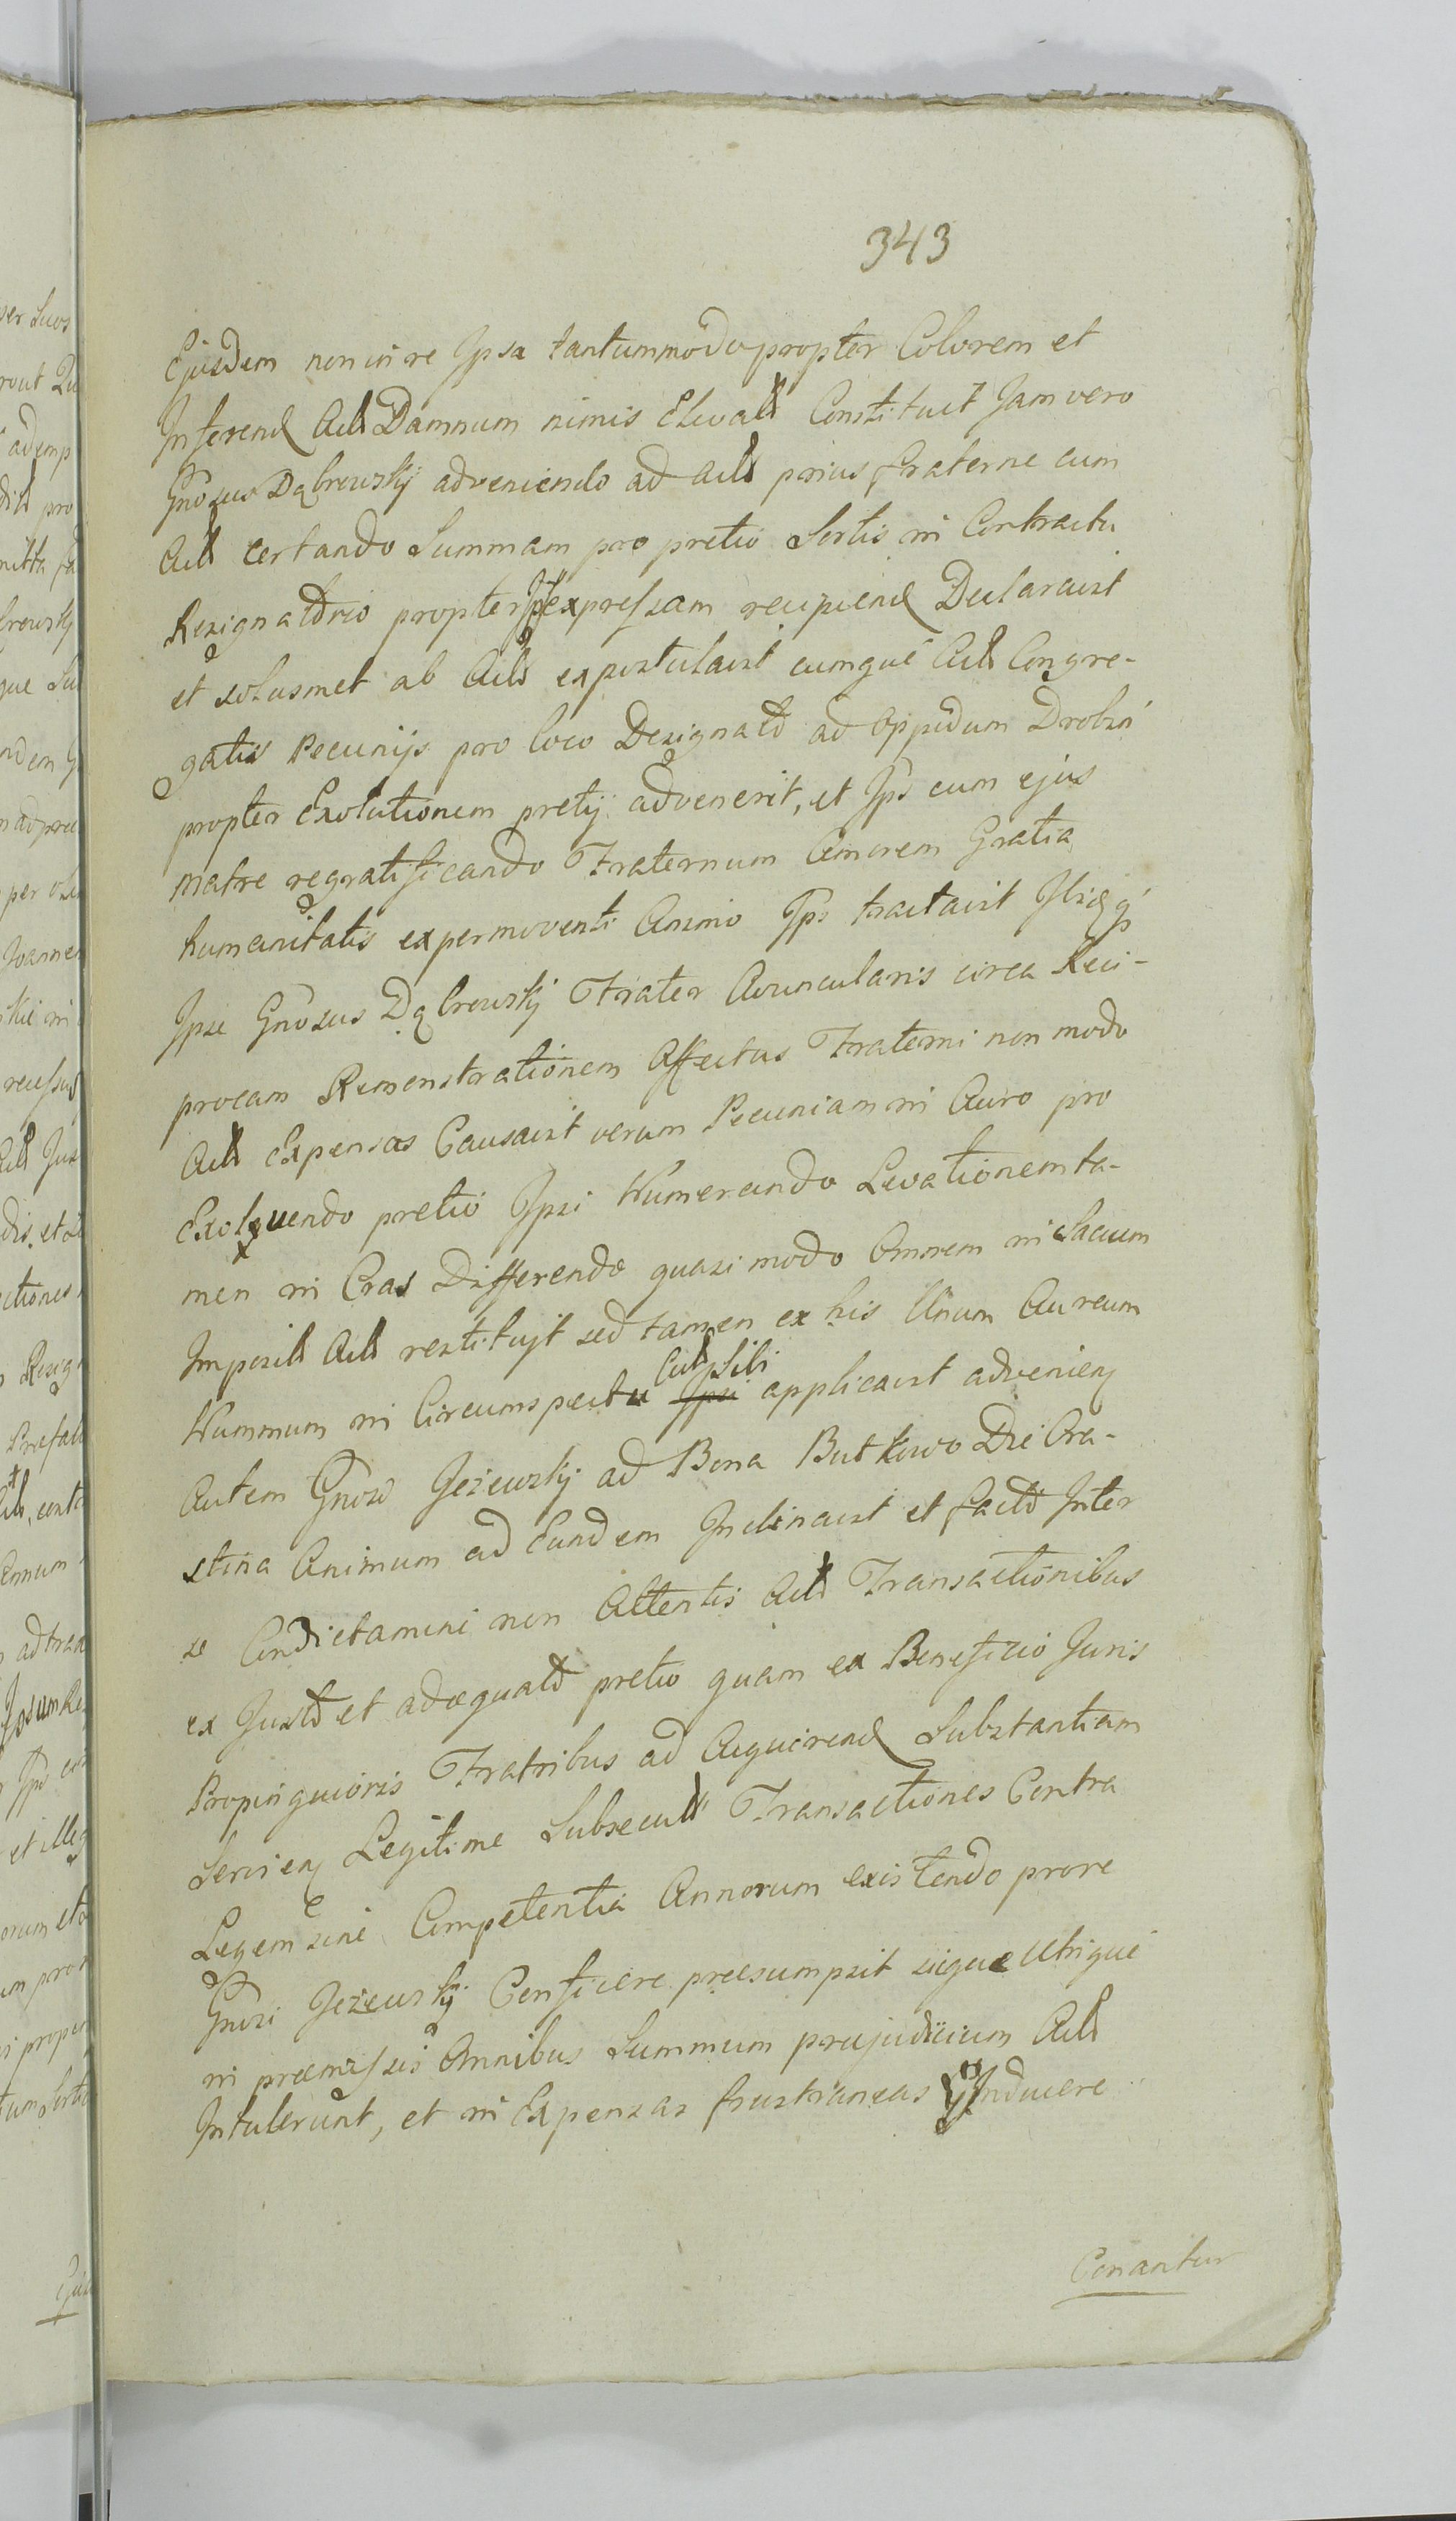 343
Ejusdem non in re Ipsa tantummodo propter Colorem et
Inferend Actt Damnum nimis Elevatt Constituit Jam vero
Gnosus Dąbrowskij adveniendo ad Actt prius fraterne cum
Actt certando Summam pro pretio Sortis in Contractu
Resignatorio propter Ips expressam recipiend Declaravit
et solusmet ab Actt expostulavit cumque Actt Congre-
gatis Pecunijs pro loco Designatto ad Oppidum Drobin
propter Exolutionem pretij advenerit, et Ips cum ejus
Matre regratificando Fraternum Amorem Gratia
humanitatis expermoventi Animo Ips tractavit
Ipse Gnosus Dąbrowskij Frater Avuncularis circa Reci-
procam Remonstrationem Affectus Fraterni non modo
Actt Expensas Causavit verum Pecuniam in Auro pro
Exolvendo pretio Ipsi Numerando Levationem ta-
men in Cras Differendo quasi modo Omnem in Sacum
Imposit Actt restituit sed tamen ex his Unum Aureum
Nummum in Circumspectu Actt Sibi Ipsi applicavit advenien
Autem Gnoso Jeżewskij ad Bona Butkowo Die Cra-
stina Animum ad Eundem Inclinavit et facto Inter
se Condictamini non Attentis Actt Transactionibus
ex Justo et adæquato pretio quam ex Beneficio Juris
Propinquioris Fratribus ad Acquirend Substantiam
Servien Legitime Subsecutt Transactiones Contra
Legem sine Competentia Annorum existendo prore
Gnosi Jeżewskij Conficere præsumpsit sicque Utrique
in præmissis Omnibus Summum præjudicium Actt
Intulerunt, et in Expensas frustraneas Inducere
Conantur